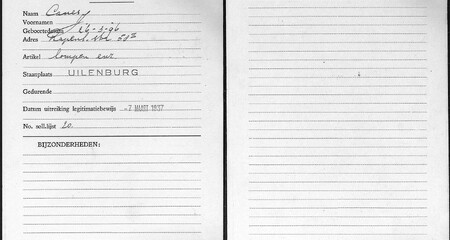 Naam
Voornamen
Geboortedatum 26-3-96
Adres
Artikel lompen enz
Staatplaats UILENBURG
Gedurende
Datum uitreiking legitimatiebewijs -7 MAART 1937
No. soll.lijst 20.
BIJZONDERHEDEN: